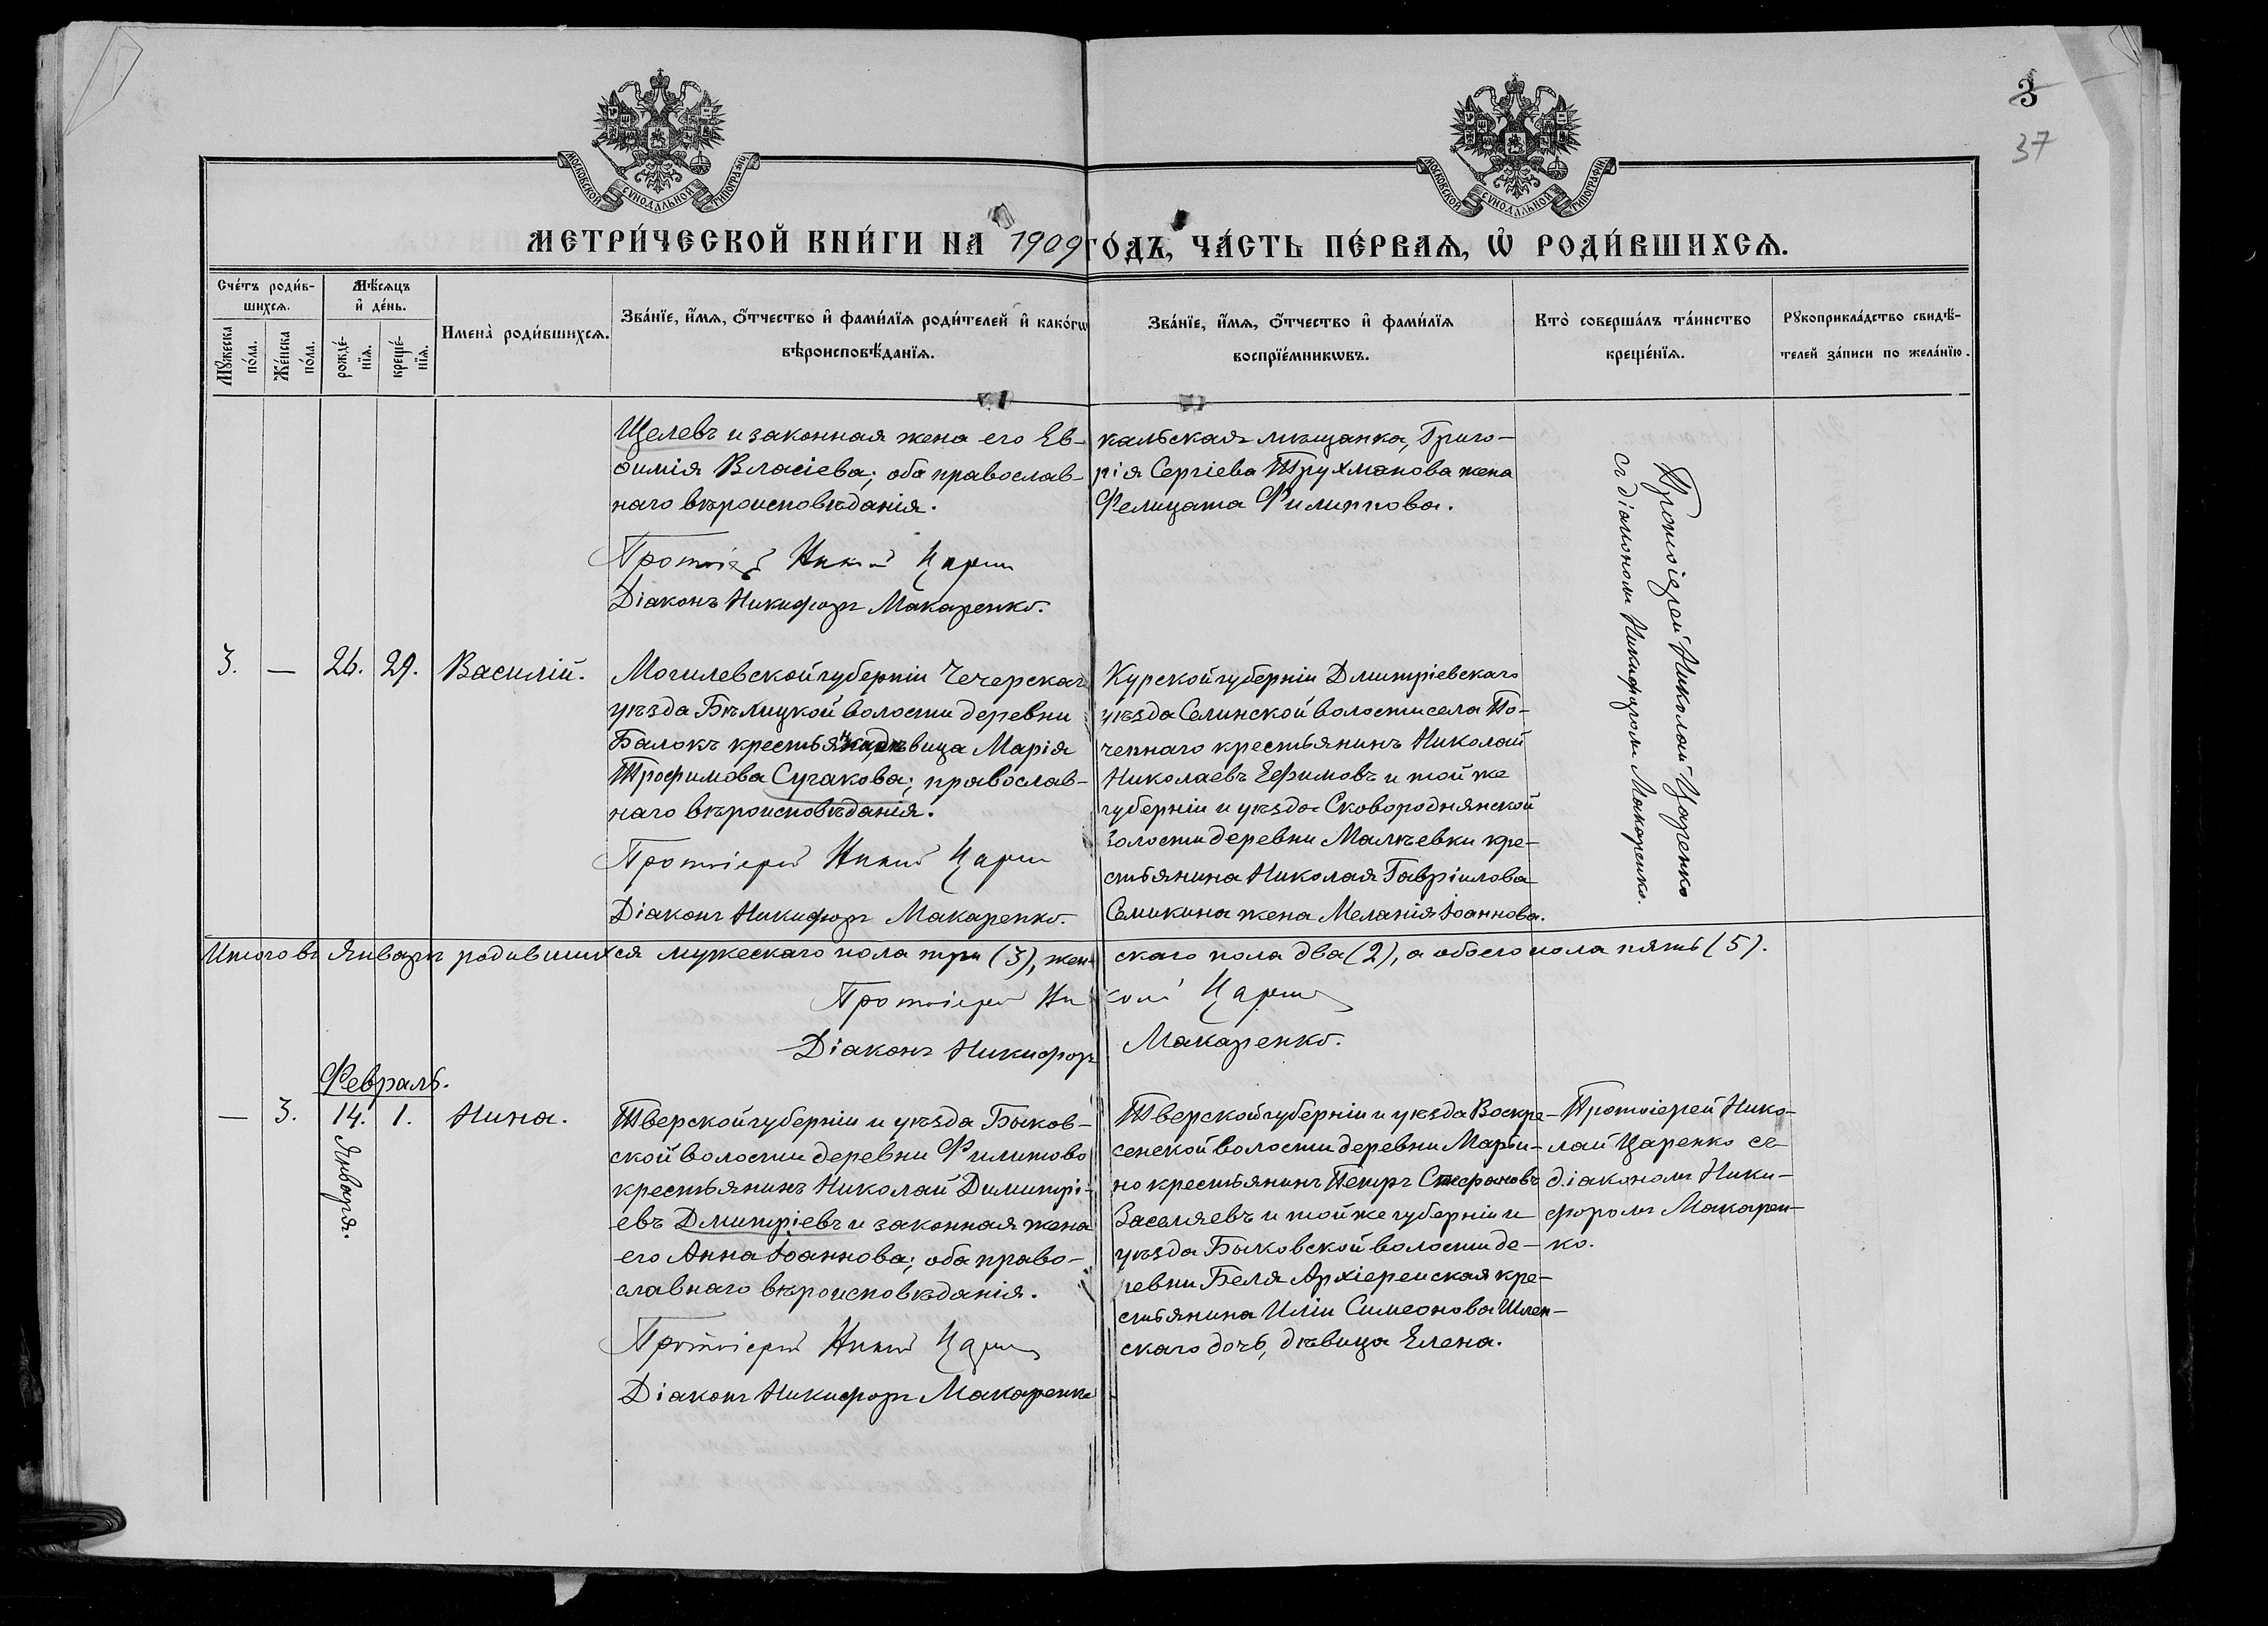 МОСКОВСКОЙ СѴНОДАЛЬНОЙ ТИПОГРАФІИ
МОСКОВСКОЙ СѴНОДАЛЬНОЙ ТИПОГРАФІИ
3
37
МЕТРИ́ЧЕСКОЙ КНИ́ГИ НА 1909 ГО́ДЪ, ЧА́СТЬ ПЕ́РВАЯ, Ѡ҆ РОДИ́ВШИХСѦ.
Сче́тъ роди́в-
шихсѧ.
Мꙋ́жеска
по́ла.
Же́нска
по́ла.
Мѣ́сѧцъ
и҆ де́нь.
рожде́-
нїѧ.
креще́-
нїѧ.
Имена̀ роди́вшихсѧ.
Зва́нїе, и҆́мѧ, ѻ҆́тчество и҆ фами́лїѧ роди́телей и҆ како́гѡ
вѣроисповѣ́данїѧ.
Зва́нїе, и҆́мѧ, ѻ҆́тчество и҆ фами́лїѧ
воспрїе́мникѡвъ.
Кто̀ соверша́лъ та́инство
креще́нїѧ.
Рꙋкоприкла́дство свидѣ́-
телей за́писи по жела́нїю.
Щелевъ и законная жена его Ев-
ѳимія Власіева; оба православ-
наго вѣроисповѣданія.
Протоіерей Николай Царенко
Діаконъ Никифоръ Макаренко.
кальская мѣщанка, Григо-
рія Сергіева Трухманова жена
Фелицата Филиппова.
Протоіерей Николай Царенко
съ діакономъ Никифоромъ Макаренко.
3. — 26. 29. Василій.
Могилевской губерніи Чечерскаго
уѣзда Бѣлицкой волости деревни
Балокъ крестьянка, дѣвица Марія
Трофимова Сугакова; православ-
наго вѣроисповѣданія.
Протоіерей Николай Царенко
Діаконъ Никифоръ Макаренко.
Курской губерніи Дмитріевскаго
уѣзда Селинской волости села По-
чепнаго крестьянинъ Николай
Николаевъ Ефимовъ и той же
губерніи и уѣзда Сковороднянской
волости деревни Малѣевки кре-
стьянина Николая Гавріилова
Семикина жена Меланія Іоаннова.
Итого въ Январѣ родившихся мужескаго пола три (3), женскаго пола два (2), а обоего пола пять (5).
Протоіерей Николай Царенко
Діаконъ Никифоръ Макаренко.
Февраль.
— 3. 14. 1. Нина.
Января.
Тверской губерніи и уѣзда Быков-
ской волости деревни Филитово
крестьянинъ Николай Димитрі-
евъ Дмитріевъ и законная жена
его Анна Іоаннова; оба право-
славнаго вѣроисповѣданія.
Протоіерей Николай Царенко
Діаконъ Никифоръ Макаренко
Тверской губерніи и уѣзда Воскре-
сенской волости деревни Марьи-
но крестьянинъ Петръ Стефановъ
Заселяевъ и той же губерніи и
уѣзда Быковской волости де-
ревни Беля Архіерейская кре-
стьянина Иліи Симеонова Шлен-
скаго дочь, дѣвица Елена.
Протоіерей Нико-
лай Царенко съ
діакономъ Ники-
форомъ Макарен-
ко.